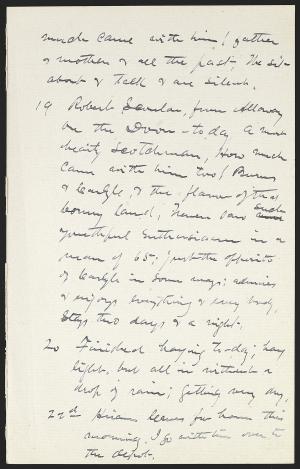 much came with him! father
& mother & all the past. We sit
about & talk & are silent.
19 Robert Scoular, from Alloway
on the Doon - to-day. A most
hearty Scotchman. How much
came with him too! Burns
& Carlyle, & the flavor of that
bonny land; Never saw such
youthful enthusiasm in a
man of 65; just the opposite
of Carlyle in some ways; admires
& enjoys everything & every body.
Stays two days & a night.
20 Finished haying to-day; hay
light, but all in without a
drop of rain; getting very dry.
22d Hiram leaves for home this
morning. I go with him over to
the depot.